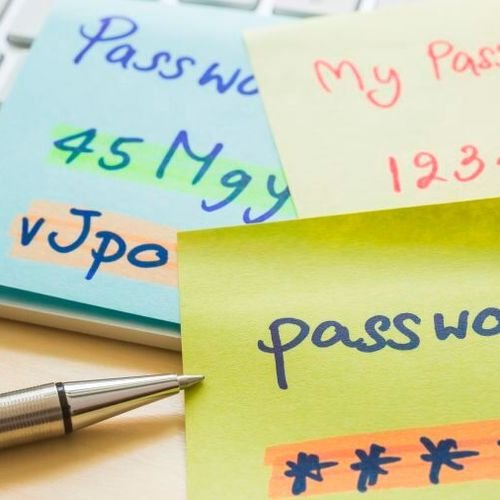 Passwo
45 Mgy
vJpo
My Pass
1234
passwo
****